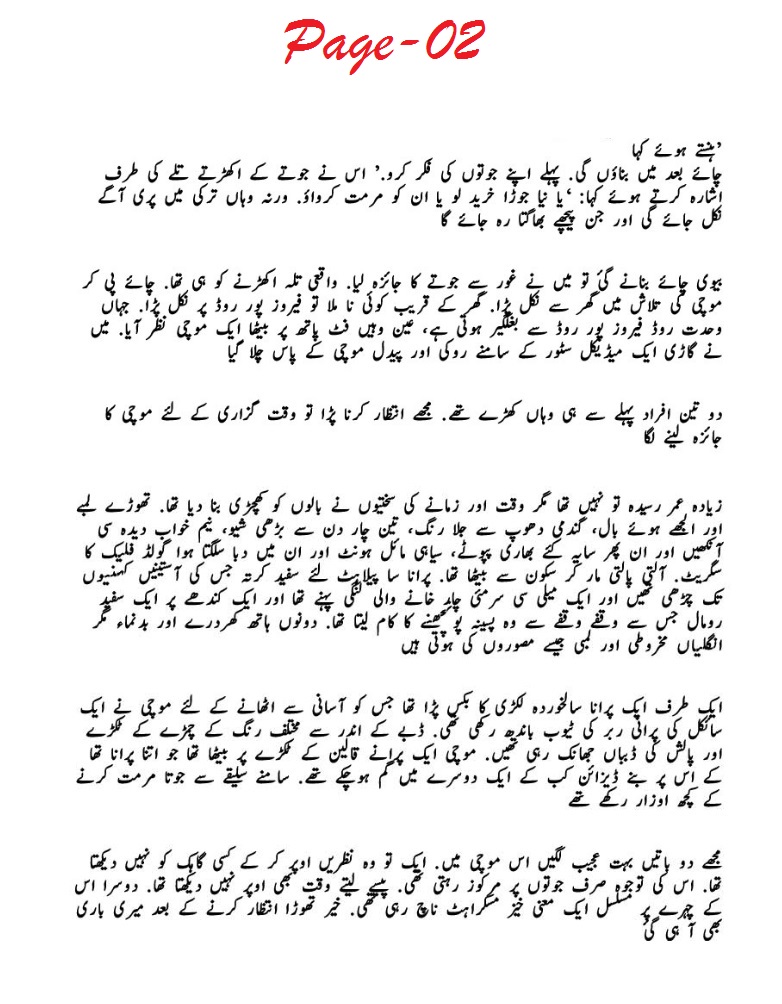 Page-02
'ہنستے ہوئے کہا
چائے بعد میں بناؤں گی. پہلے اپنے جوتوں کی فکر کرو.' اس نے جوتے کے اکھڑتے تلے کی طرف
اشارہ کرتے ہوئے کہا: 'یا نیا جوڑا خرید لو یا ان کو مرمت کرواؤ. ورنہ وہاں ترکی میں پری آگے
نکل جائے گی اور جن پیچھے بھاگتا رہ جائے گا
بیوی چائے بنانے گئ تو میں نے غور سے جوتے کا جائزہ لیا. واقعی تلہ اکھڑنے کو ہی تھا. چائے پی کر
موچی کی تلاش میں گھر سے نکل پڑا. گھر کے قریب کوئی نا ملا تو فیروز پور روڈ پر نکل پڑا. جہاں
وحدت روڈ فیروز پور روڈ سے بغلگیر ہوتی ہے، عین وہیں فٹ پاتھ پر بیٹھا ایک موچی نظر آیا. میں
نے گاڑی ایک میڈیکل سٹور کے سامنے روکی اور پیدل موچی کے پاس چلا گیا
دو تین افراد پہلے سے ہی وہاں کھڑے تھے. مجھے انتظار کرنا پڑا تو وقت گزاری کے لئے موچی کا
جائزہ لینے لگا
زیادہ عمر رسیدہ تو نہیں تھا مگر وقت اور زمانے کی سختیوں نے بالوں کو کھچڑی بنا دیا تھا. تھوڑے لمبے
اور الجھے ہوئے بال، گندمی دھوپ سے جلا رنگ، تین چار دن سے بڑھی شیو، نیم خواب دیدہ سی
آنکھیں اور ان پھر سایہ کئے بھاری پپوٹے، سیاہی مائل ہونٹ اور ان میں دبا سلگتا ہوا گولڈ فلیک کا
سگریٹ. آلتی پالتی مار کر سکون سے بیٹھا تھا. پرانا سا پیلاہٹ لئے سفید کرتہ جس کی آستینیں کہنیوں
تک چڑھی تھیں اور ایک میلی سی سرمئی چار خانے والی لنگی پہنے تھا اور ایک کندھے پر ایک سفید
رومال جس سے وقفے وقفے سے وہ پسینہ پونچھنے کا کام لیتا تھا. دونوں ہاتھ کھردرے اور بدنماء مگر
انگلیاں مخروطی اور لمبی جیسے مصوروں کی ہوتی ہیں
ایک طرف ایک پرانا سالخوردہ لکڑی کا بکس پڑا تھا جس کو آسانی سے اٹھانے کے لئے موچی نے ایک
سائکل کی پرانی ربر کی ٹیوب باندھ رکھی تھی. ڈبے کے اندر سے مختلف رنگ کے چمڑے کے ٹکڑے
اور پالش کی ڈبیاں جھانک رہی تھیں. موچی ایک پرانے قالین کے ٹکڑے پر بیٹھا تھا جو اتنا پرانا تھا
کے اس پر بنے ڈیزائن کب کے ایک دوسرے میں گم ہوچکے تھے. سامنے سلیقے سے جوتا مرمت کرنے
کے کچھ اوزار رکھے تھے
مجھے دو باتیں بہت عجیب لگیں اس موچی میں. ایک تو وہ نظریں اوپر کر کے کسی گاہک کو نہیں دیکھتا
تھا. اس کی توجوہ صرف جوتوں پر مرکوز رہتی تھی. پیسے لیتے وقت بھی اوپر نہیں دیکھتا تھا. دوسرا اس
کے چہرے پر مسلسل ایک معنی خیز مسکراہٹ ناچ رہی تھی. خیر تھوڑا انتظار کرنے کے بعد میری باری
بھی آ ہی گئ